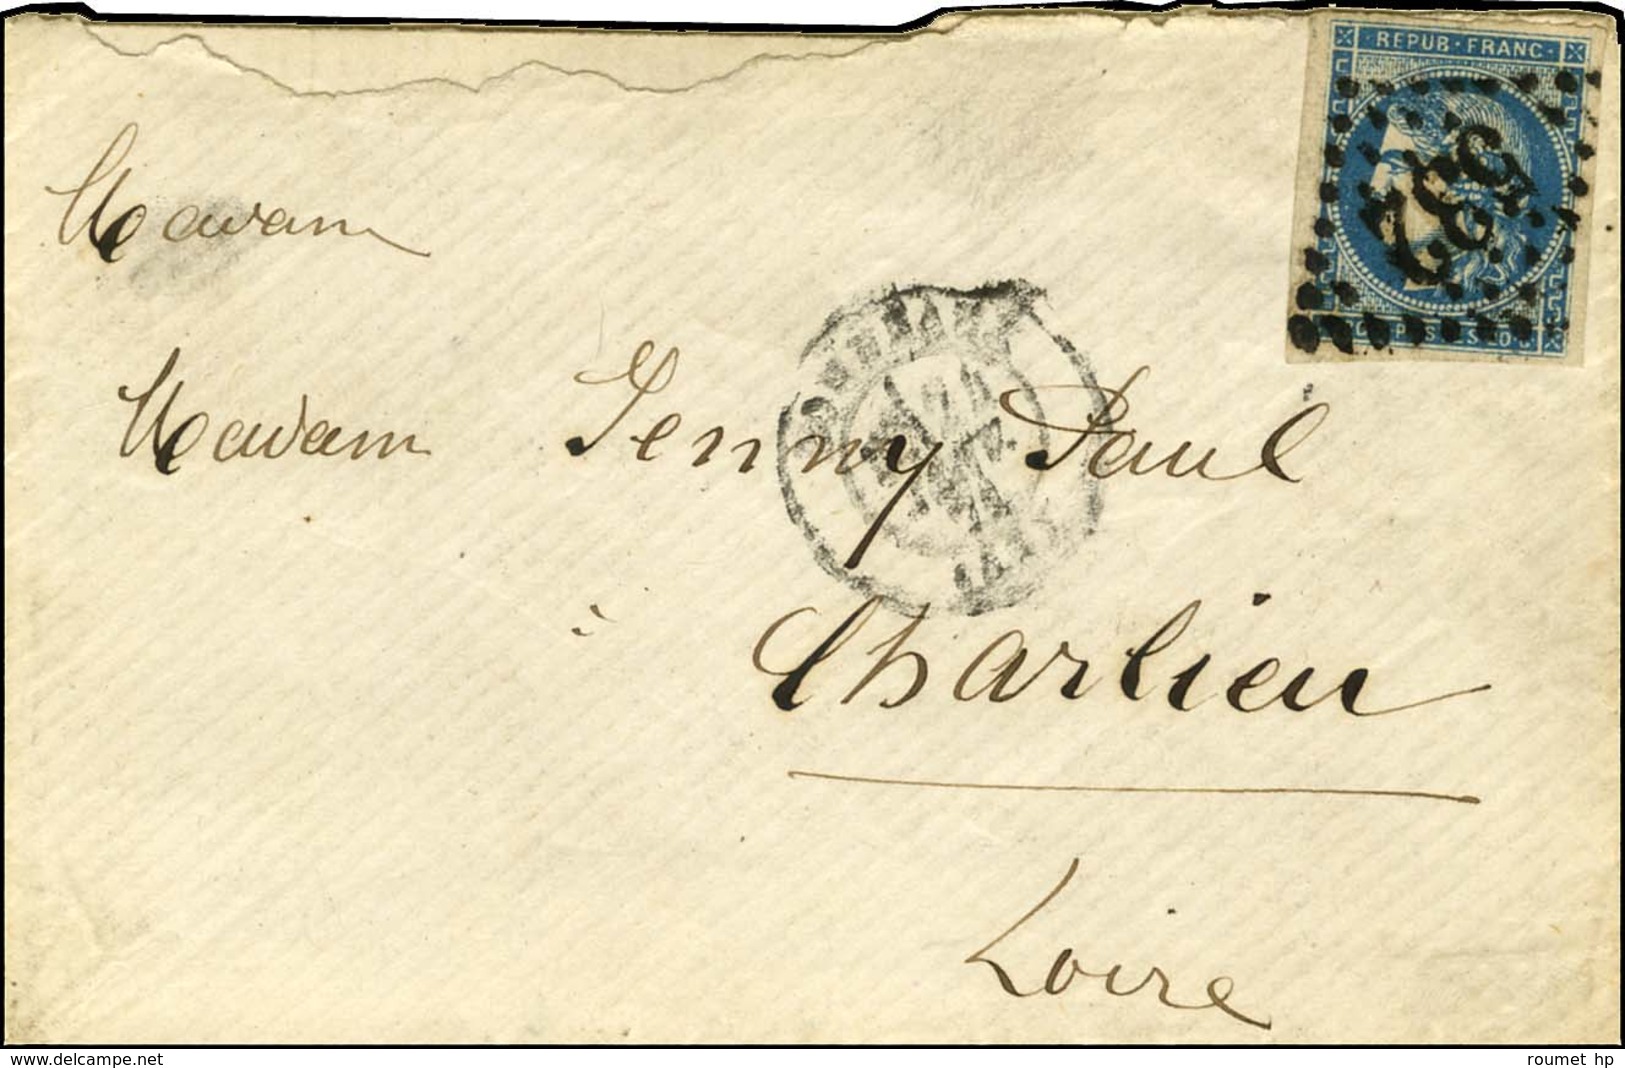 REPUB · FRANC ·
532
Madam
Madam Jenny Paul
à Charlieu
Loire
www.delcampe.net
roumet hp